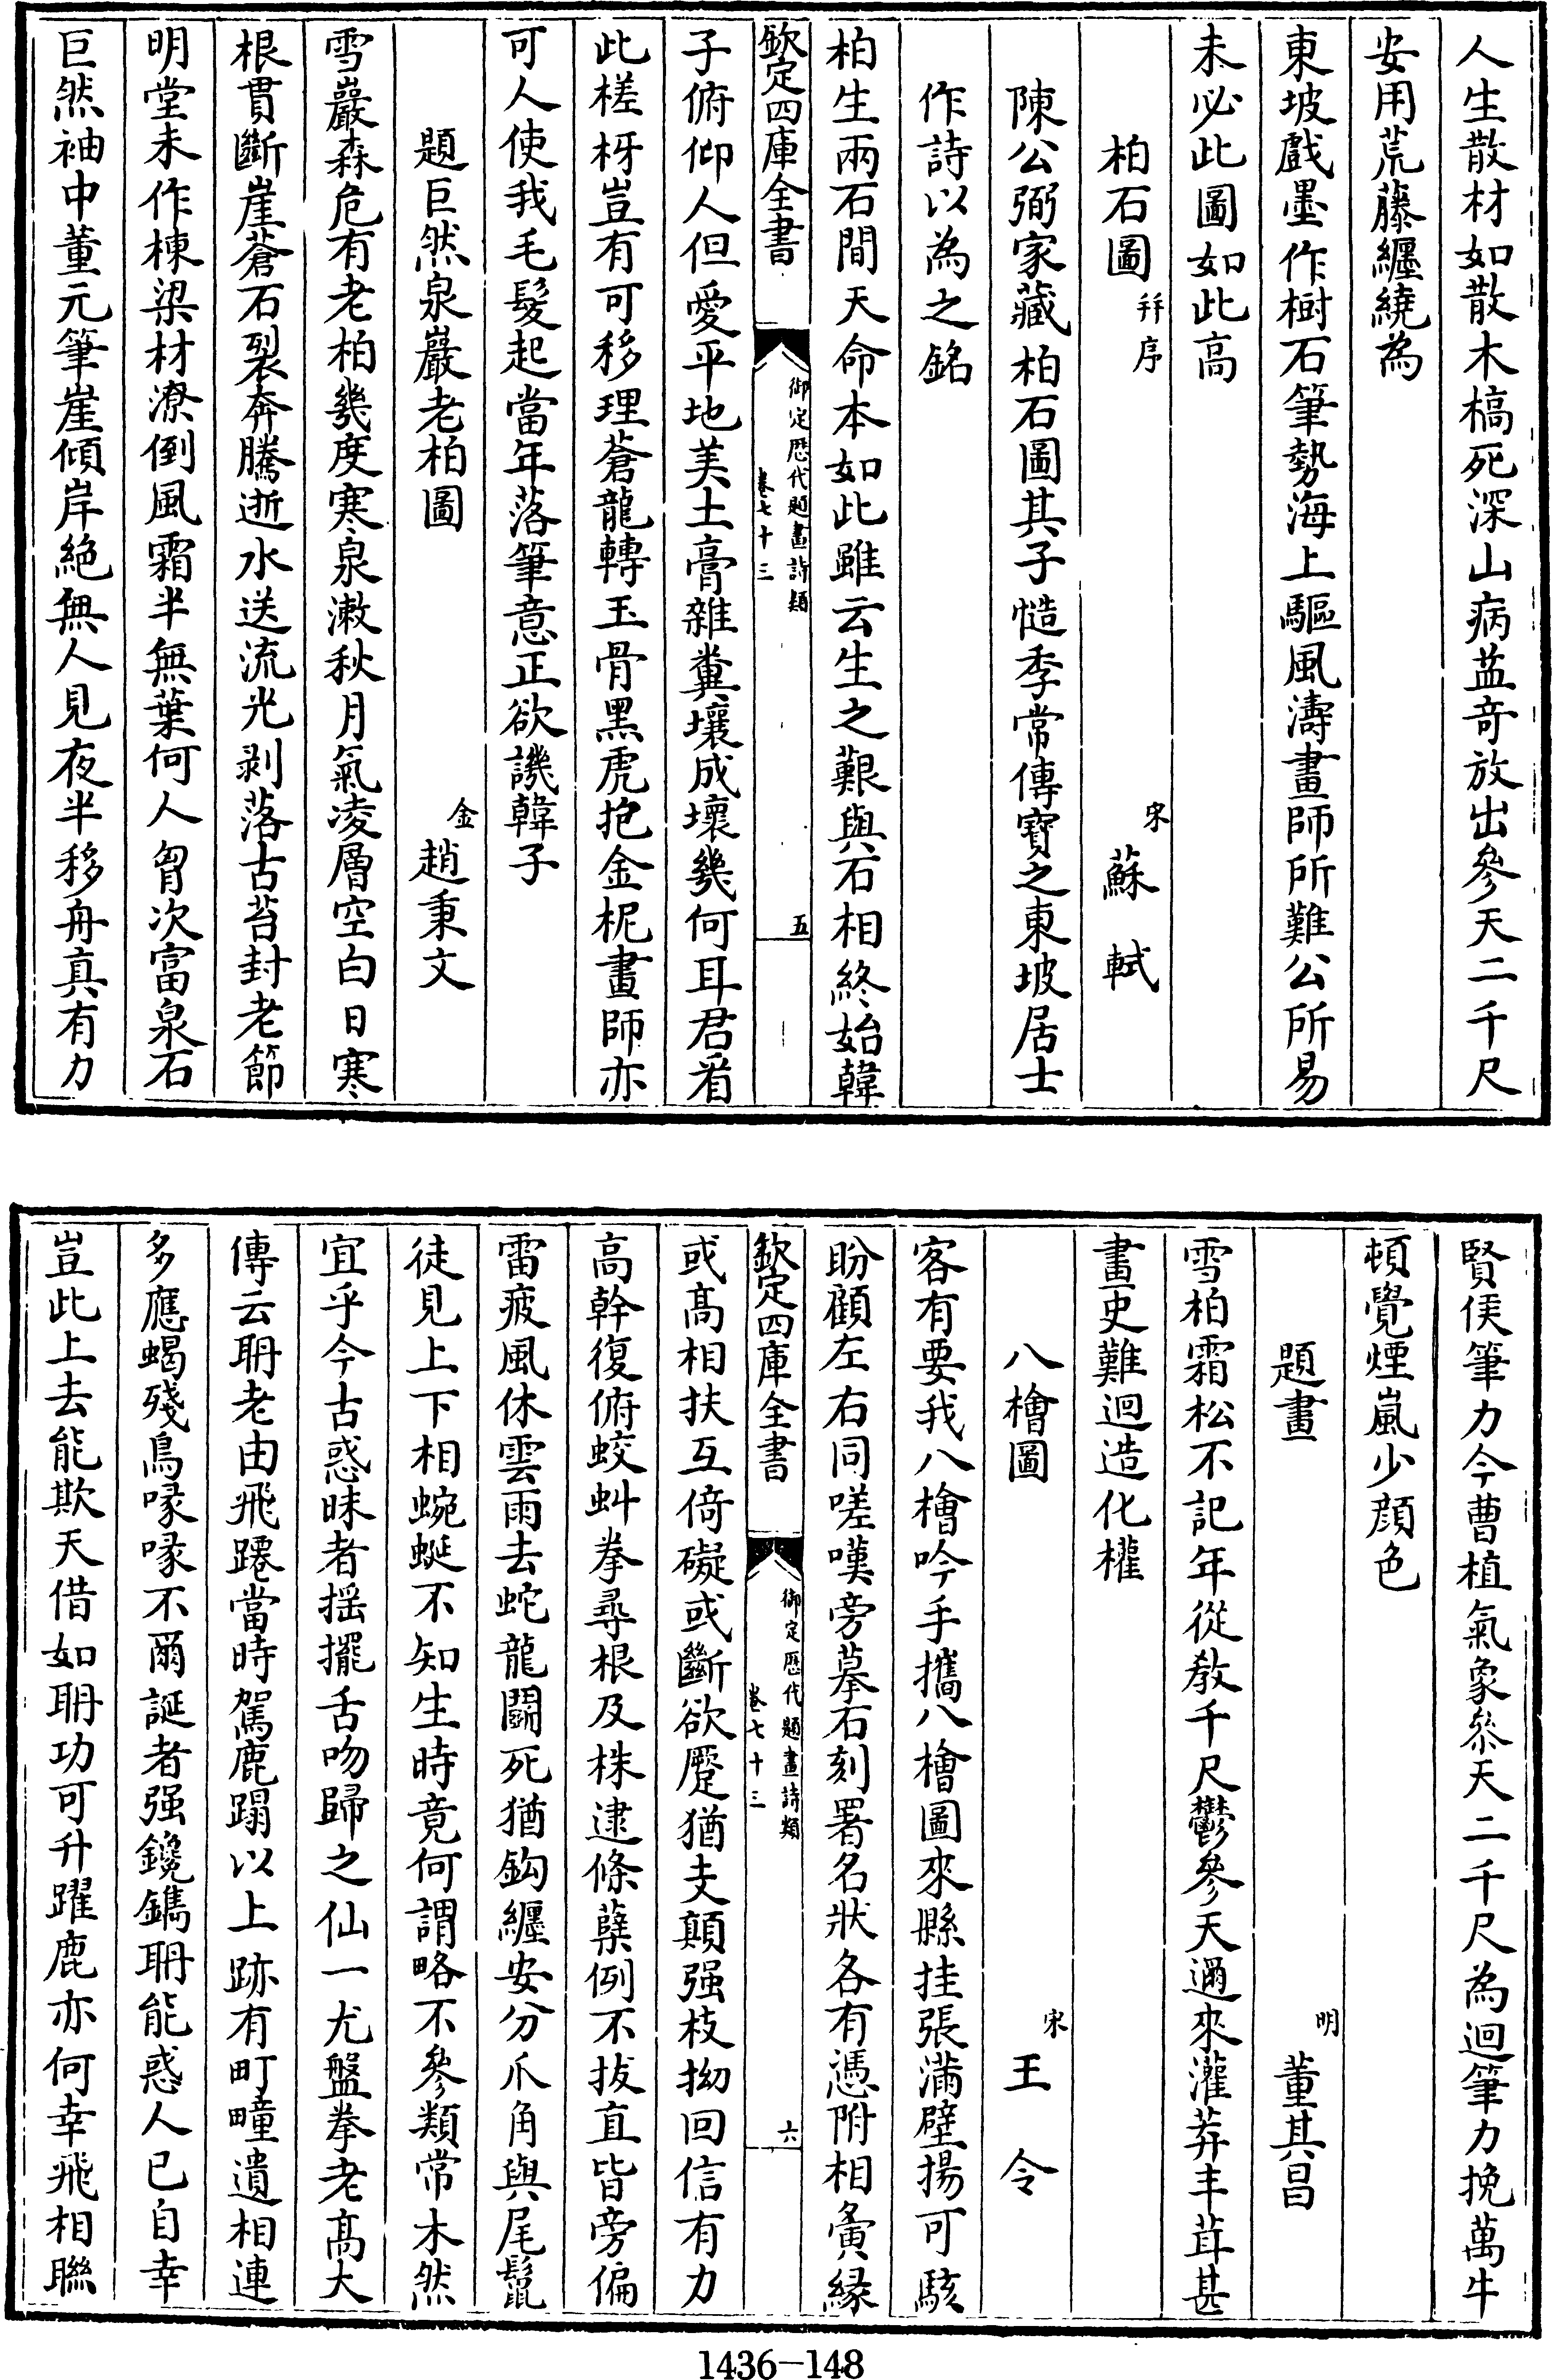 人生散材如散木槁死深山病益奇放出參天二千尺
安用荒藤纒繞為
東坡戲墨作樹石筆勢海上驅風濤畫師所難公所易
未必此圖如此高
柏石圖 并序 宋 蘇軾
陳公弼家藏柏石圖其子慥季常傳寶之東坡居士
作詩以為之銘
柏生兩石間天命本如此雖云生之艱與石相終始韓
欽定四庫全書 御定歷代題畫詩類 卷七十三 五
子俯仰人但愛平地美土膏雜糞壤成壞幾何耳君看
此槎枒豈有可移理蒼龍轉玉骨黑虎抱金柅畫師亦
可人使我毛髮起當年落筆意正欲譏韓子
題巨然泉巖老柏圖 金 趙秉文
雪巖森危有老柏幾度寒泉漱秋月氣凌層空白日寒
根貫斷崖蒼石裂奔騰逝水送流光剥落古苔封老節
明堂未作棟梁材潦倒風霜半無葉何人胷次富泉石
巨然袖中董元筆崖傾岸絶無人見夜半移舟真有力
賢侯筆力今曹植氣象叅天二千尺為迴筆力挽萬牛
頓覺煙嵐少顔色
題畫 明 董其昌
雪柏霜松不記年從教千尺鬱參天邇來灌莽丰茸甚
畫史難迴造化權
八檜圖 宋 王令
客有要我八檜吟手攜八檜圖來縣挂張滿壁揚可駭
盼顧左右同嗟嘆旁摹石刻署名狀各有憑附相夤縁
欽定四庫全書 御定歷代題畫詩類 卷七十三 六
或髙相扶互倚礙或斷欲蹷猶支顛强枝拗回信有力
高幹復俯蛟虯拳尋根及株逮條蘖例不拔直皆旁偏
雷疲風休雲雨去蛇龍鬬死猶鈎纒安分爪角與尾鬛
徒見上下相蜿蜒不知生時竟何謂略不參類常木然
宜乎今古惑昧者摇擺舌吻歸之仙一尤盤拳老髙大
傳云耼老由飛躚當時駕鹿蹋以上跡有町疃遺相連
多應蝎殘鳥喙喙不爾誕者强鑱鐫耼能惑人已自幸
豈此上去能欺天借如耼功可升躍鹿亦何幸飛相聯
1436-148